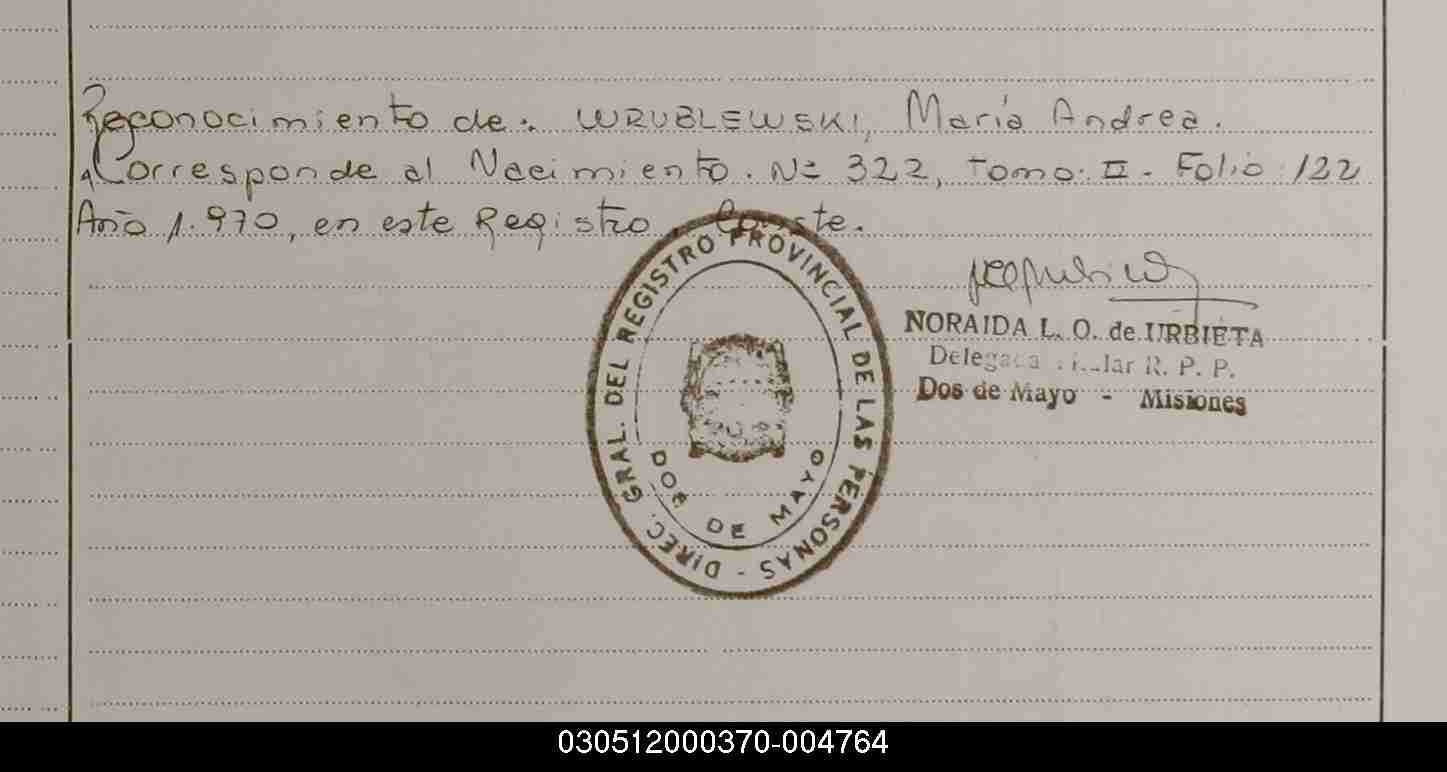 Reconocimiento de: WRUBLEWSKI, María Andrea.
Corresponde al Nacimiento. Nº 322, tomo: II - Folio: 122
Año 1.970, en este Registro. Conste.
DIREC. GRAL. DEL REGISTRO PROVINCIAL DE LAS PERSONAS -
DOS DE MAYO
NORAIDA L. O. de URBIETA
R. P. P.
Dos de Mayo - Misiones
030512000370-004764